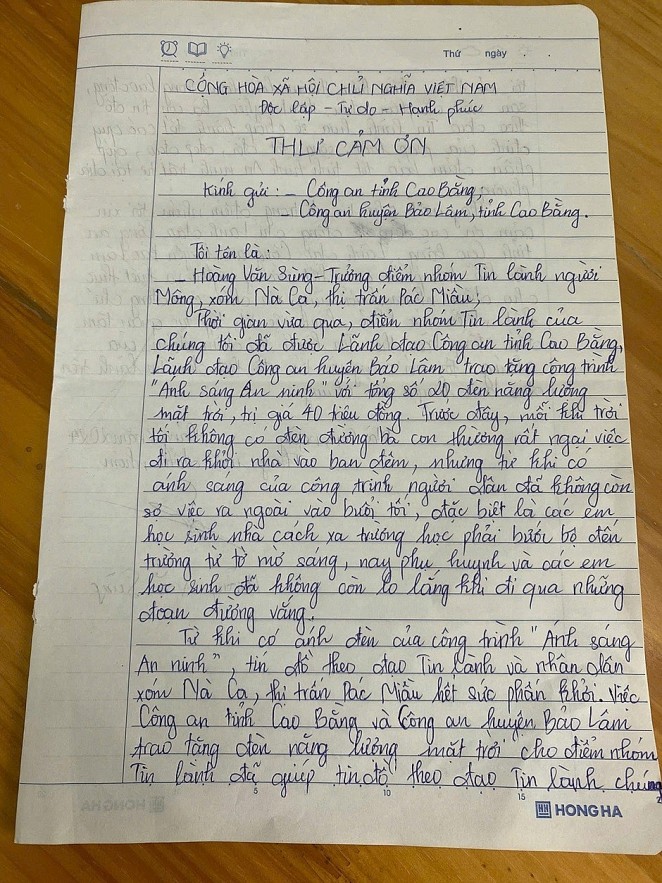 Thứ ngày
CỘNG HÒA XÃ HỘI CHỦ NGHĨA VIỆT NAM
Độc lập - Tự do - Hạnh phúc
THƯ CẢM ƠN
Kính gửi: - Công an tỉnh Cao Bằng;
Công an huyện Bảo Lâm, tỉnh Cao Bằng.
Tôi tên là:
- Hoàng Văn Sùng - Trưởng điểm nhóm Tin lành người
Mông, xóm Nà Ca, thị trấn Pác Miầu;
Thời gian vừa qua, điểm nhóm Tin lành của
chúng tôi đã được Lãnh đạo Công an tỉnh Cao Bằng,
Lãnh đạo Công an huyện Bảo Lâm trao tặng công trình
"Ánh sáng An ninh" với tổng số 20 đèn năng lượng
mặt trời, trị giá 40 triệu đồng. Trước đây, mỗi khi trời
tối không có đèn đường bà con thường rất ngại việc
đi ra khỏi nhà vào ban đêm, nhưng từ khi có
ánh sáng của công trình người dân đã không còn
sợ việc ra ngoài vào buổi tối, đặc biệt là các em
học sinh nhà cách xa trường học phải bước bộ đến
trường từ tờ mờ sáng, nay phụ huynh và các em
học sinh đã không còn lo lắng khi đi qua những
đoạn đường vắng.
Từ khi có ánh đèn của công trình "Ánh sáng
An ninh", tín đồ theo đạo Tin lành và nhân dân
xóm Nà Ca, thị trấn Pác Miầu hết sức phấn khởi. Việc
Công an tỉnh Cao Bằng và Công an huyện Bảo Lâm
trao tặng đèn năng lượng mặt trời cho điểm nhóm
Tin lành đã giúp tín đồ theo đạo Tin lành chúng
5 10 15
HONG HA